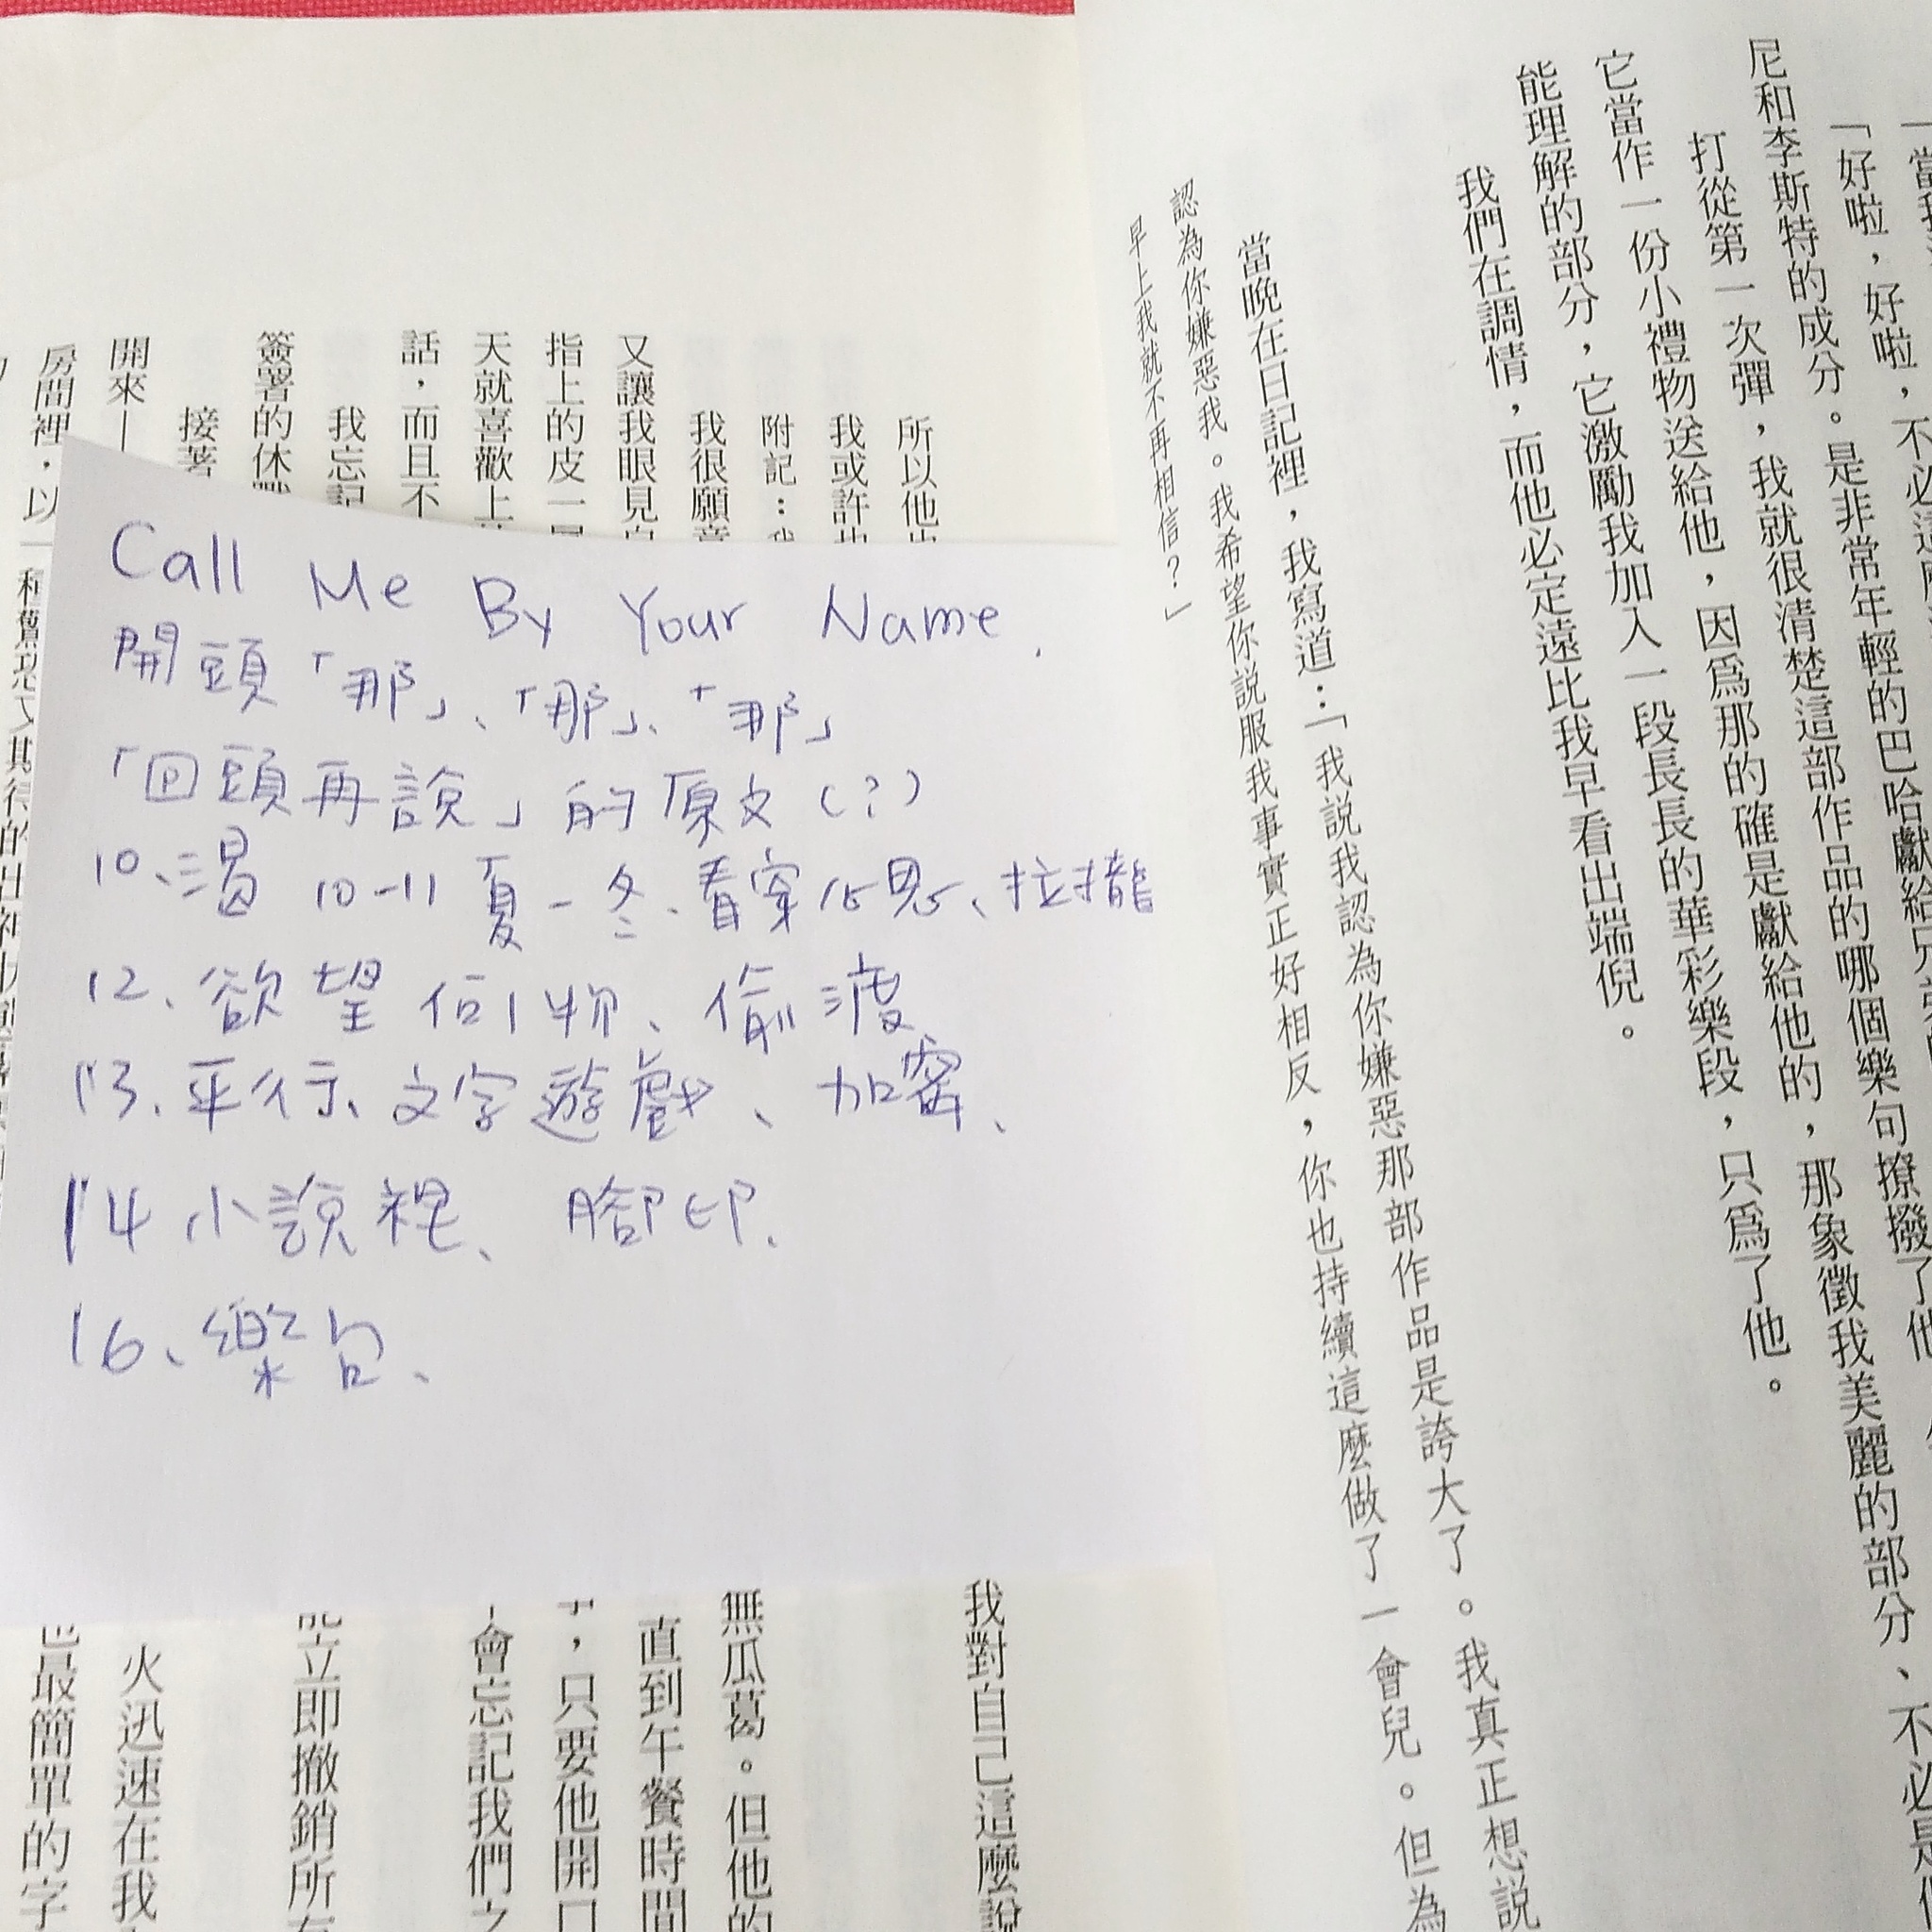 Call Me By Your Name.
開頭「那」、「那」、「那」
「回頭再說」的原文(?)
10、渴 10-11 夏-冬、看穿心思、拉攏
12、欲望何物、偷渡
13、平行、文字遊戲、加密、
14 小說裡、腳印、
16、樂句、
「好啦,好啦,
尼和李斯特的成分。是非常年輕的巴哈獻給
打從第一次彈,我就很清楚這部作品的哪個樂句撩撥了他
它當作一份小禮物送給他,因爲那的確是獻給他的,那象徵我美麗的部分、不必
能理解的部分,它激勵我加入一段長長的華彩樂段,只爲了他。
我們在調情,而他必定遠比我早看出端倪。
當晚在日記裡,我寫道:「我説我認為你嫌惡那部作品是誇大了。我真正想説
認為你嫌惡我。我希望你説服我事實正好相反,你也持續這麼做了一會兒。但為
早上我就不再相信?」
所以他
我或許
附記:我
我很願意
又讓我眼見
指上的皮一
天就喜歡上
話,而且不
我忘記
簽署的休戰
接著
開來—
房間裡,以一種
我對自己這麼說
無瓜葛。但他的
直到午餐時間
,只要他開口
會忘記我們之
能立即撤銷所
火迅速在我
也最簡單的字